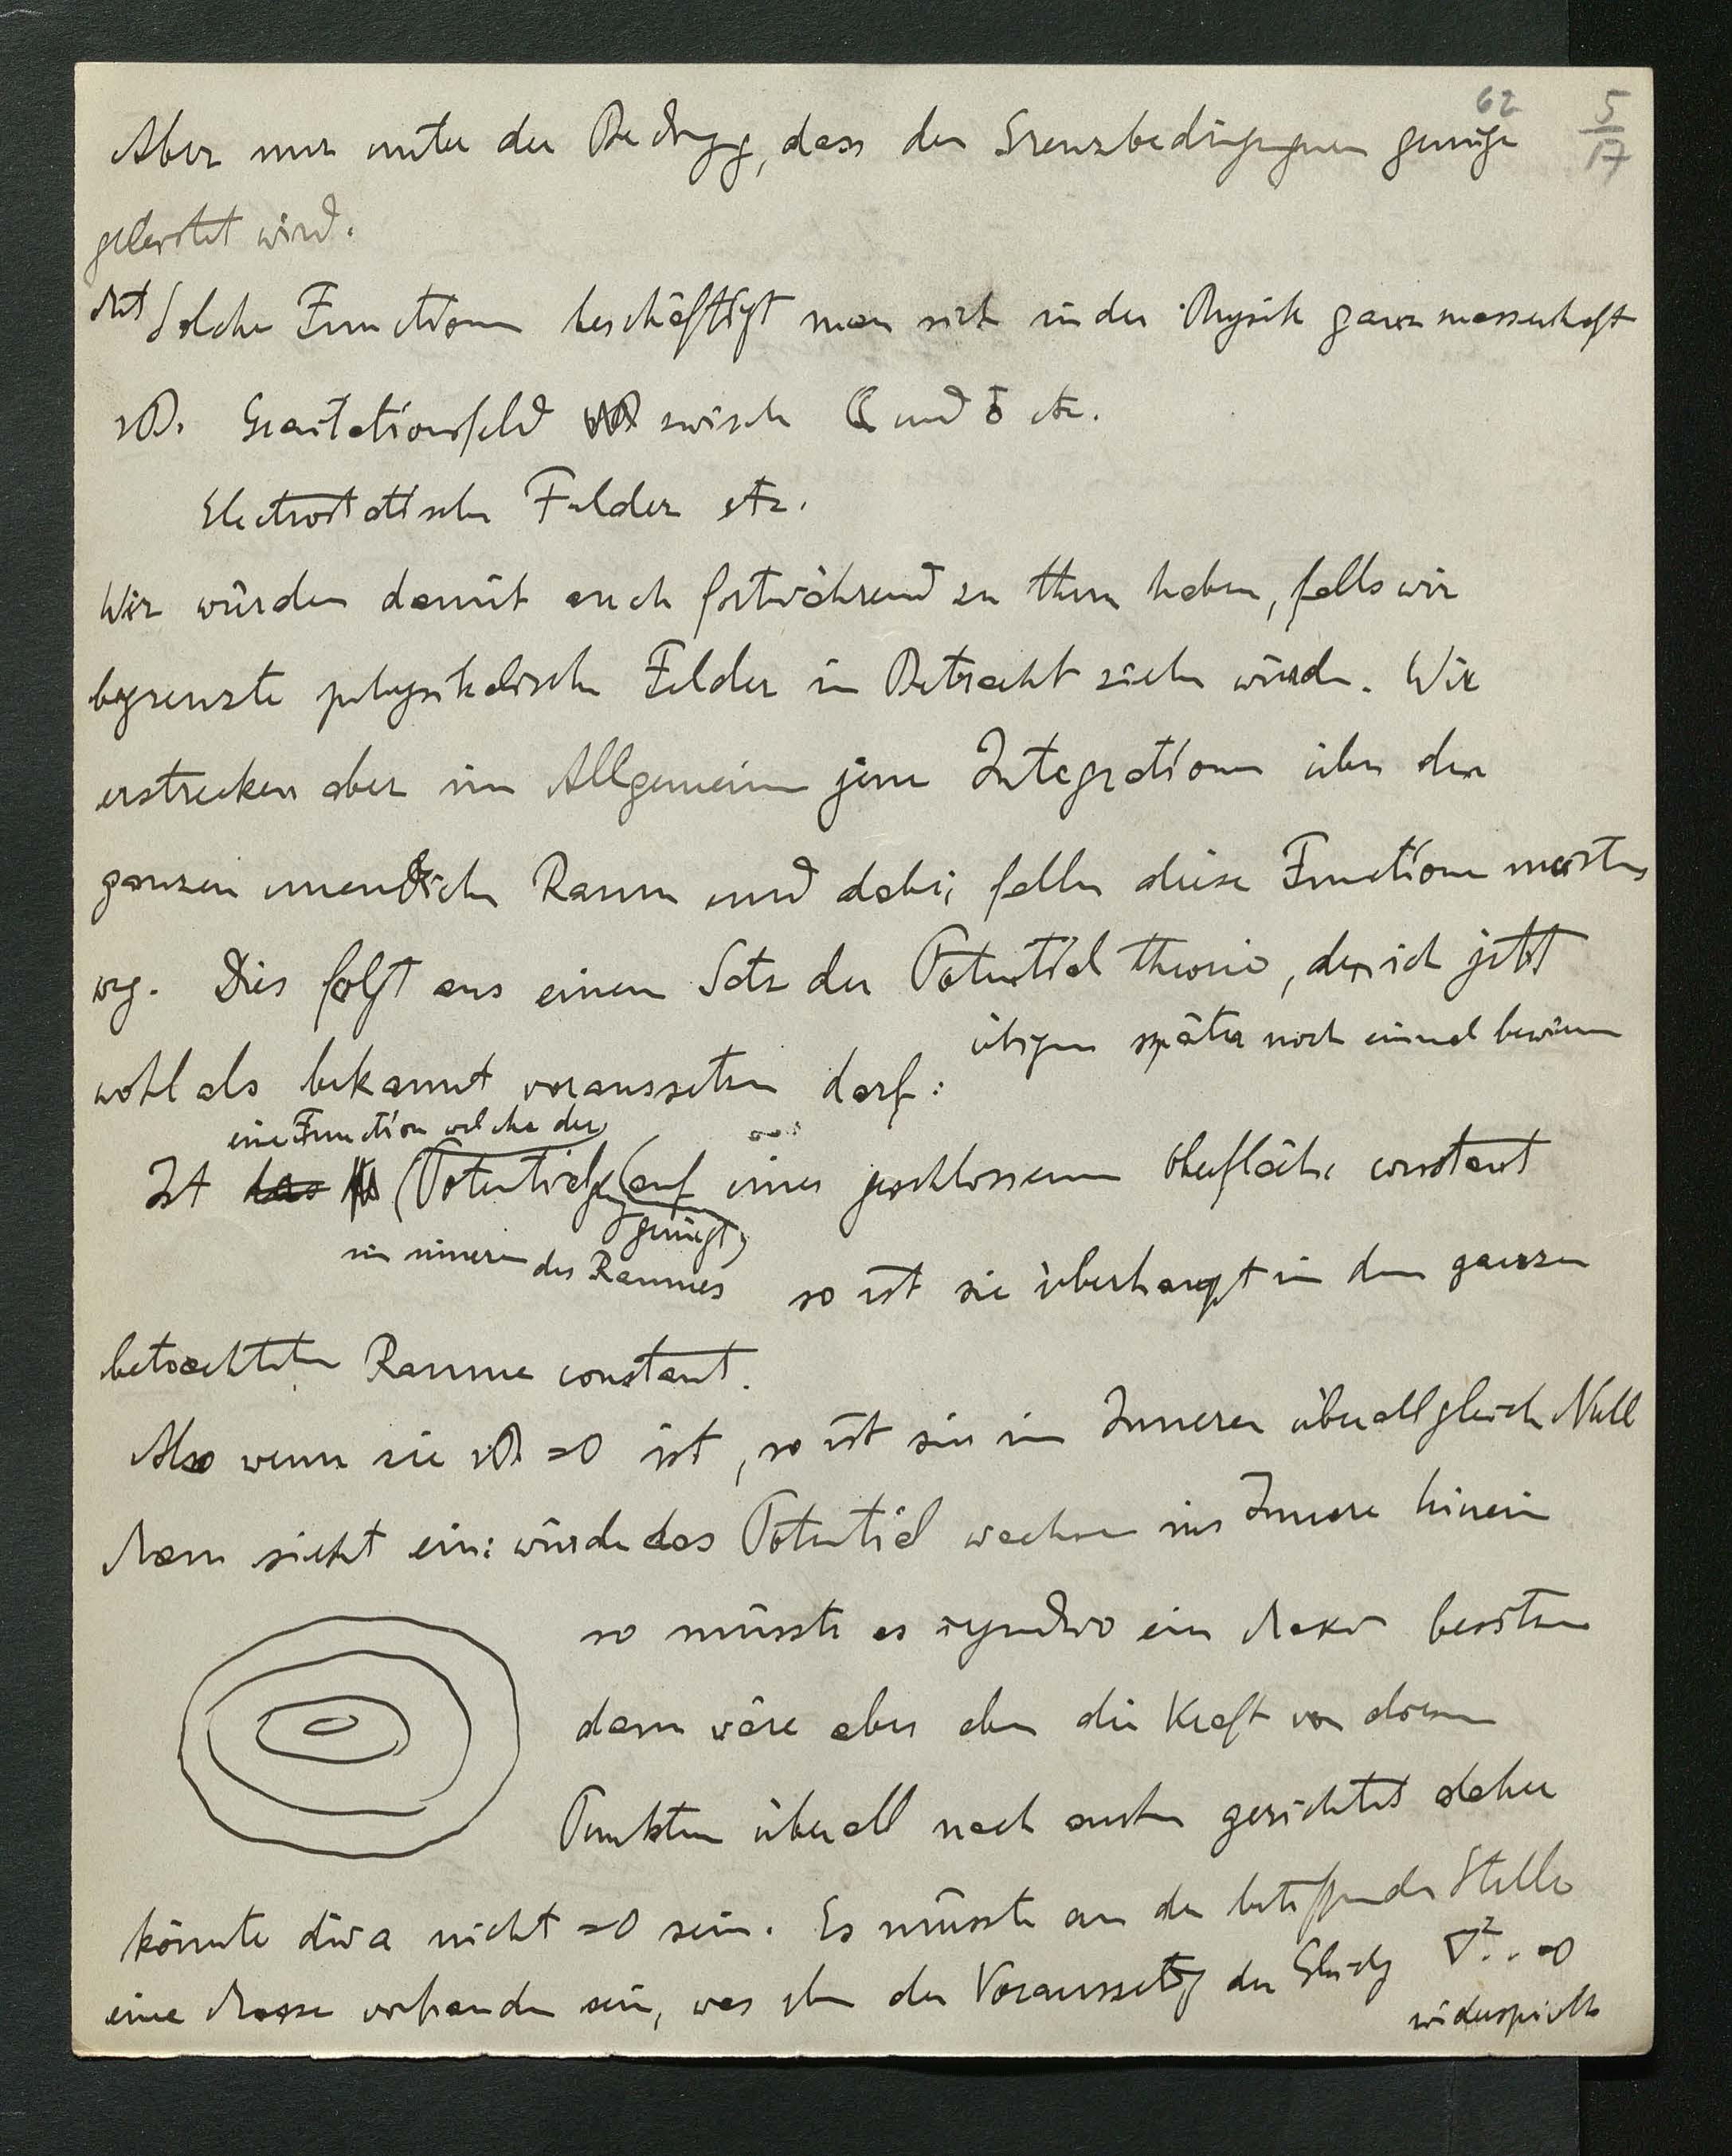 62
5/17
Aber nur unter der Bedingg, dass den Grenzbedingungen genüge
geleistet wird.
Mit Solchen Functionen beschäftigt man sich in der Physik ganz massenhaft
zB. Gravitationsfeld zwischen ☾ und ♁ etc.
Electrostatischen Felder etc.
Wir würden damit auch fortwährend zu thun haben, falls wir
begrenzte physikalische Felder in Betracht ziehen würden. Wir
erstrecken aber im Allgemeinen jene Integrationen über den
ganzen unendlichen Raum und dabei fallen diese Functionen meistens
weg. Dies folgt aus einem Satz der Potential theorie, den ich jetzt
übrigens später noch einmal beweisen
wohl als bekannt voraussetzen darf:
eine Function welche der
Ist das (Potentialgl. auf einer geschlossenen Oberfläche constant
genügt)
im inneren des Raumes so ist sie überhaupt in dem ganzen
betrachteten Raume constant.
Also wenn sie zB =0 ist, so ist sie im Inneren überall gleich Null
Man sieht ein: würde das Potential wachsen ins Innere hinein
so müsste es irgendwo ein Max besitzen
dann wäre aber eben die Kraft von diesem
Punkten überall nach aussen gerichtet daher
könnte div a nicht =0 sein. Es müsste an der betreffenden Stelle
eine Masse vorhanden sein, was eben der Voraussetzg der Gleichg ∇²..=0
widerspricht